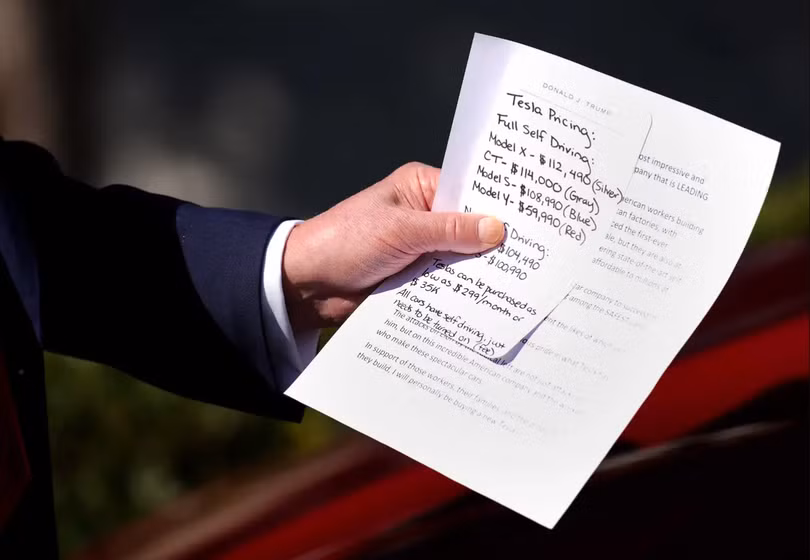 DONALD J. TRUMP
Tesla Pricing:
Full Self Driving:
Model X - $112,490 (Silver)
CT - $114,000 (Gray)
Model S - $108,990 (Blue)
Model Y - $59,990 (Red)
N Driving:
$104,490
- $100,990
Teslas can be purchased as
low as $299/month or
$35K
All cars have self driving, just
needs to be turned on (
ost impressive and
pany that is LEADING
erican workers building
can factories, with
ced the first-ever
le, but they are also at
ering state of the art
affordable to millions of
car company to
among the SAFEST
the likes of which
The attacks
him, but on this incredible American company and the
who make these spectacular cars.
In support of those workers, their families, and the
they build, I will personally be buying a new Tesla